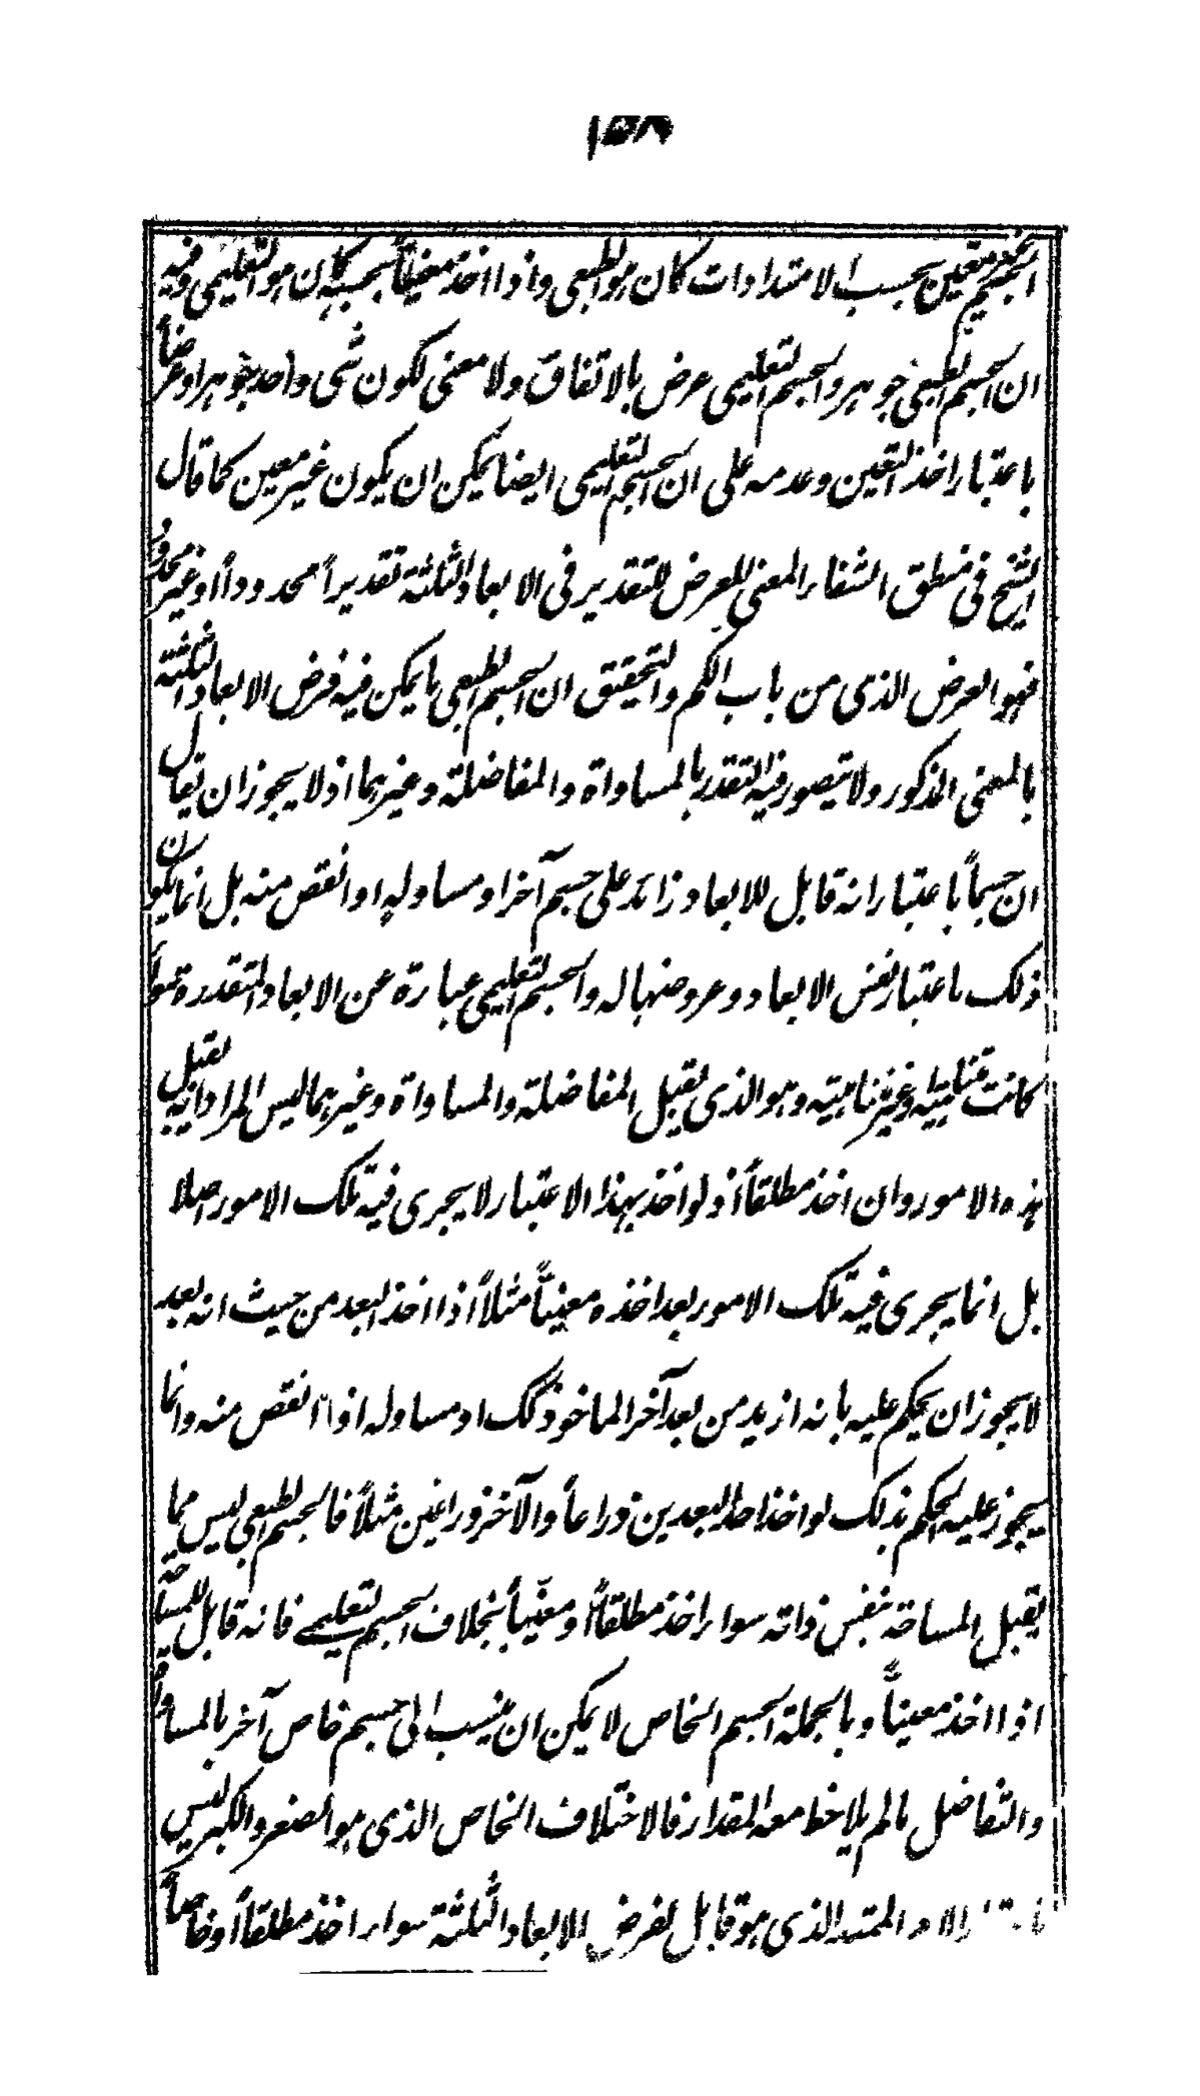 ١٥٨
الجسم غير متعين بحسب الامتدادات كان هو الطبعى واذا اخذ معيناً بحسبها كان هو التعليمى وفيه
ان الجسم الطبعى جوهر والجسم التعليمى عرض بالاتفاق ولا معنى لكون شى واحد جوهرا وعرضاً
باعتبار اخذ التعين وعدمه على ان الجسم التعليمى ايضا يمكن ان يكون غير معين كما قال
الشيخ فى منطق الشفاء المعنى للعرض للتقدير فى الابعاد الثلثة تقديراً محدوداً او غير محدود
فهو العرض الذى من باب الكم والتحقيق ان الجسم الطبعى ما يمكن فيه فرض الابعاد الثلثة
بالمعنى المذكور ولا يتصور فيه التقدر بالمساواة والمفاضلة وغيرهما اذ لا يجوز ان يقال
ان جسماً باعتبار انه قابل للابعاد زائد على جسم آخر او مساو له او انقص منه بل انما يكون
ذلك باعتبار نفس الابعاد وعروضها له والجسم التعليمى عبارة عن الابعاد المتقدرة سواءً
كانت متناهية او غير متناهية وهو الذى يقبل المفاضلة والمساواة وغيرهما ليس المراد انه يقبل
هذه الامور وان اخذ مطلقاً اذ لو اخذ بهذا الاعتبار لا يجرى فيه تلك الامور اصلا
بل انما يجرى فيه تلك الامور بعد اخذه معيناً مثلاً اذا اخذ البعد من حيث انه بعد
لا يجوز ان يحكم عليه بانه ازيد من بعد آخر الماخوذ كك او مساو له او انقص منه وانما
يجوز عليه الحكم بذلك لو اخذ احد البعدين ذراعاً والآخر ذراعين مثلاً فالجسم الطبعى ليس مما
يقبل المساحة بنفس ذاته سواء اخذ مطلقاً او معيّناً بخلاف الجسم التعليمى فانه قابل للمساحة
اذا اخذ معيناً وبالجملة الجسم الخاص لا يمكن ان ينسب الى جسم خاص آخر بالمساواة
والتفاضل ما لم يلاحظ معه المقدار فالاختلاف الخاص الذى هو الصغر والكبر ليس
الممتد الذى هو قابل لفرض الابعاد الثلثة سواء اخذ مطلقاً او خاصاً